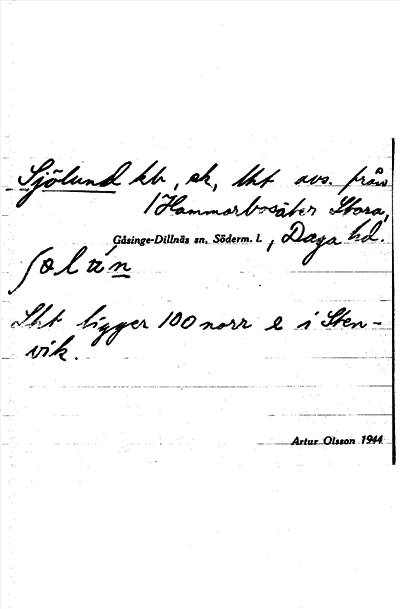 Sjölund kb, ek, lht avs. från
1/Hammarbosäter Stora,
Gåsinge-Dillnäs sn. Söderm. l., Daga hd.
Lht ligger 100 norr e i Sten-
vik.
Artur Olsson 1944